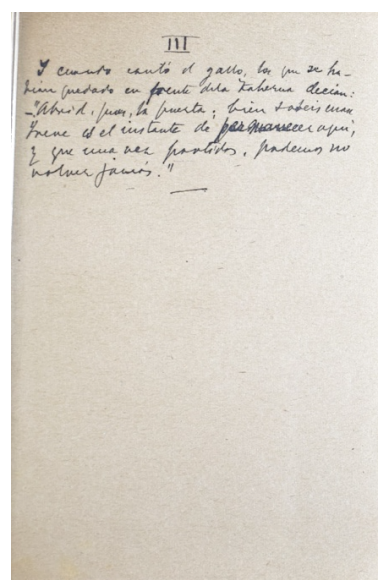 III
Y cuando cantó el gallo, los que se ha-
bian quedado en frente de la taberna decian:
-"Abrid, pues, la puerta; bien sabeis cuan
breve es el instante de permanecer aquí,
y que una vez partidos, podemos no
volver jamás."